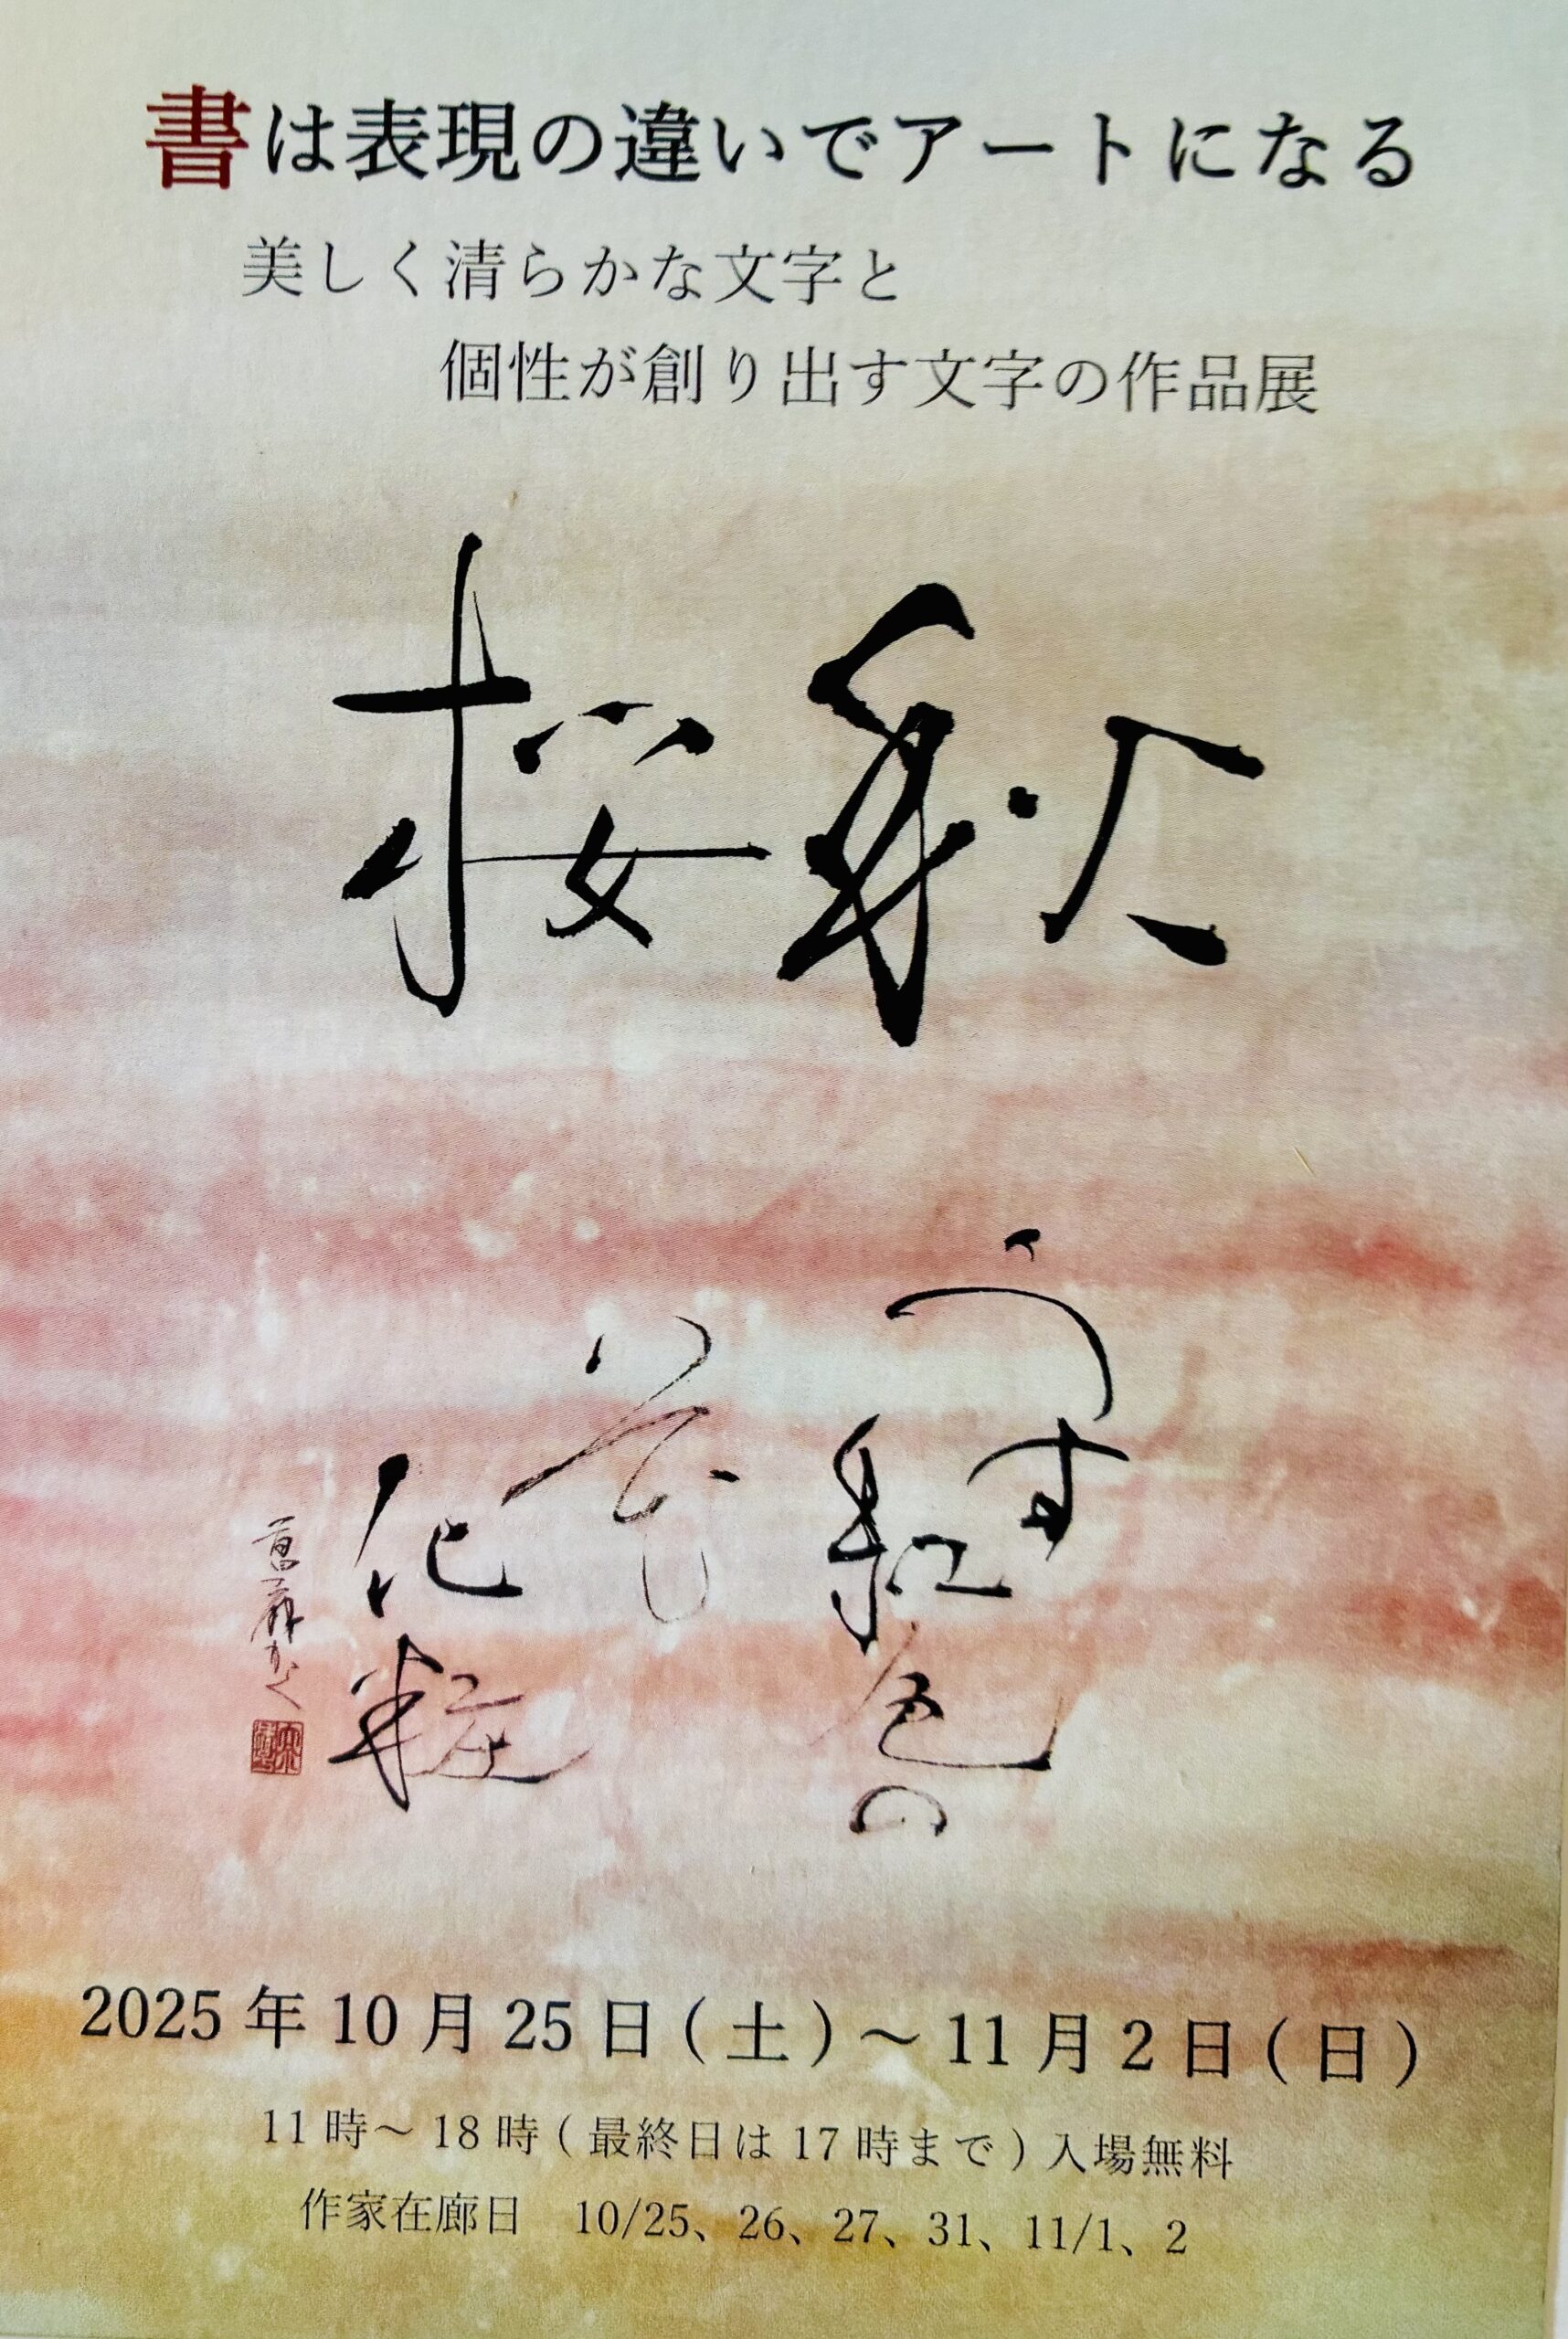 書は表現の違いでアートになる
美しく清らかな文字と
個性が創り出す文字の作品展
秋桜
うす紅色の
花化粧
2025年10月25日(土)～11月2日(日)
11時～18時(最終日は17時まで)入場無料
作家在廊日　10/25、26、27、31、11/1、2